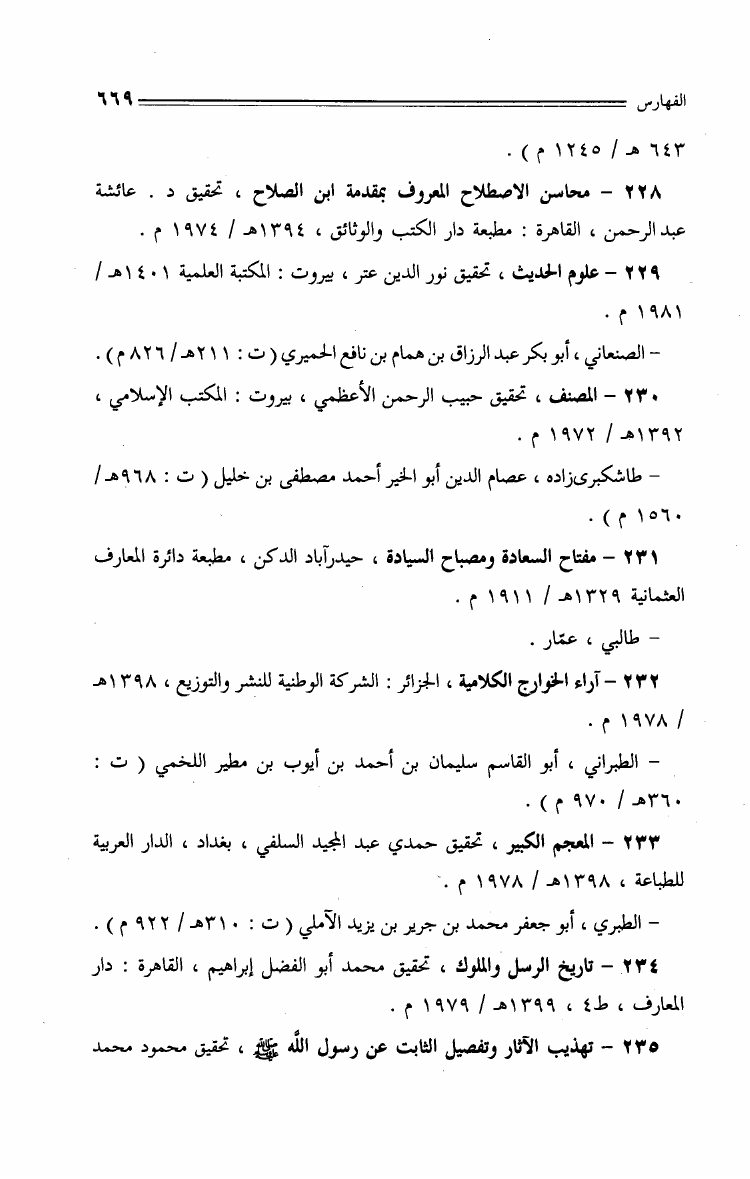 الفهارس ٦٦٩
٦٤٣ هـ / ١٢٤٥ م ) .
٢٢٨ – محاسن الاصطلاح المعروف بمقدمة ابن الصلاح ، تحقيق د . عائشة
عبد الرحمن ، القاهرة : مطبعة دار الكتب والوثائق ، ١٣٩٤هـ / ١٩٧٤ م .
٢٢٩ – علوم الحديث ، تحقيق نور الدين عتر ، بيروت : المكتبة العلمية ١٤٠١هـ /
١٩٨١ م .
– الصنعاني ، أبو بكر عبد الرزاق بن همام بن نافع الحميري ( ت : ٢١١هـ / ٨٢٦ م ) .
٢٣٠ – المصنف ، تحقيق حبيب الرحمن الأعظمي ، بيروت : المكتب الإسلامي ،
١٣٩٢هـ / ١٩٧٢ م .
– طاشكبرىزاده ، عصام الدين أبو الخير أحمد مصطفى بن خليل ( ت : ٩٦٨هـ /
١٥٦٠ م ) .
٢٣١ – مفتاح السعادة ومصباح السيادة ، حيدرآباد الدكن ، مطبعة دائرة المعارف
العثمانية ١٣٢٩هـ / ١٩١١ م .
– طالبي ، عمّار .
٢٣٢ – آراء الخوارج الكلامية ، الجزائر : الشركة الوطنية للنشر والتوزيع ، ١٣٩٨هـ
/ ١٩٧٨ م .
– الطبراني ، أبو القاسم سليمان بن أحمد بن أيوب بن مطير اللخمي ( ت :
٣٦٠هـ / ٩٧٠ م ) .
٢٣٣ – المعجم الكبير ، تحقيق حمدي عبد المجيد السلفي ، بغداد ، الدار العربية
للطباعة ، ١٣٩٨هـ / ١٩٧٨ م .
– الطبري ، أبو جعفر محمد بن جرير بن يزيد الآملي ( ت : ٣١٠هـ / ٩٢٢ م ) .
٢٣٤ – تاريخ الرسل والملوك ، تحقيق محمد أبو الفضل إبراهيم ، القاهرة : دار
المعارف ، ط٤ ، ١٣٩٩هـ / ١٩٧٩ م .
٢٣٥ – تهذيب الآثار وتفصيل الثابت عن رسول اللَّه ﷺ ، تحقيق محمود محمد